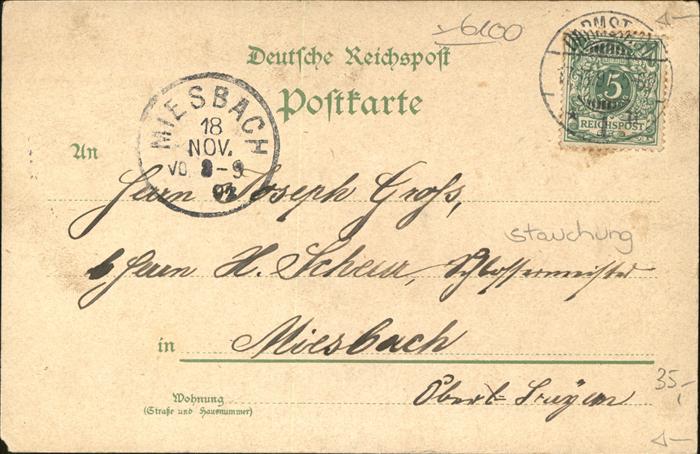 6100
Deutsche Reichspost
Postkarte
DARMST
5
REICHSPOST
MIESBACH
18
NOV.
An
Herrn Joseph Groß,
stauchung
b/Herrn H. Scheur, Schlossermeister
in Miesbach
35,-
Wohnung
(Straße und Hausnummer)
Oberb-